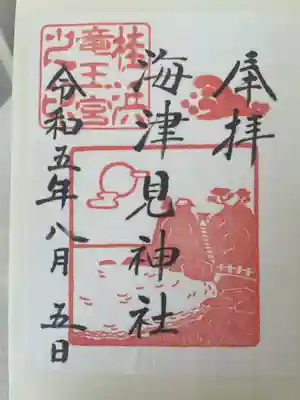 奉拝
海津見神社
令和五年八月五日
桂浜
竜王宮
之印